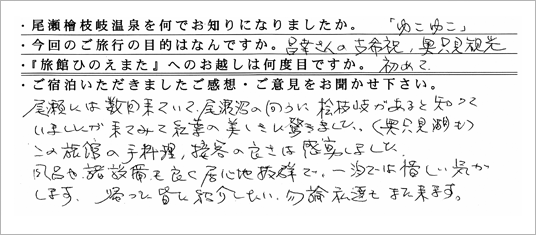 ・尾瀬檜枝岐温泉を何でお知りになりましたか。 「ゆこゆこ」
・今回のご旅行の目的はなんですか。 昌幸さんの古希祝,奥只見観光
・『旅館ひのえまた』へのお越しは何度目ですか。 初めて
・ご宿泊いただきましたご感想・ご意見をお聞かせ下さい。
尾瀬には数回来ていて,尾瀬沼の向うに桧枝岐があると知って
いましたが来てみて紅葉の美しさに驚きました。(奥只見湖も)
この旅館の手料理,接客の良さは感動しました.
風呂や諸設備も良く居心地抜群で、一泊では惜しい気が
します. 帰ったら皆に紹介したい. 勿論私達もまた来ます。